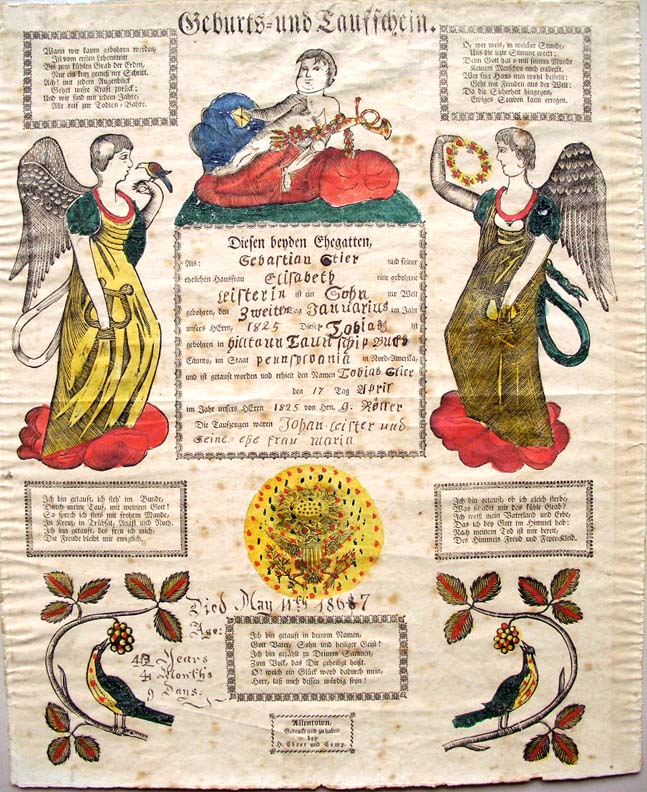 Geburts- und Taufschein.
Wann wir kaum gebohren werden,
Ist vom ersten Lebenstritt
Bis zum kühlen Grab der Erden,
Nur ein kurz gemeß'ner Schritt.
Ach! mit jedem Augenblick
Gehet unsre Kraft zurück;
Und wir sind mit jedem Jahre,
Allzu reif zur Todten-Bahre.
O! wer weis, in welcher Stunde,
Uns die letzte Stimme weckt;
Denn Gott hat's mit seinem Munde
Keinem Menschen noch entdeckt.
Wer sein Haus nun wohl bestellt;
Geht mit Freuden aus der Welt;
Da die Sicherheit hingegen,
Ewiges Sterben kann erregen.
Diesen beyden Ehegatten,
Als: Sebastian Stier und seiner
ehelichen Hausfrau Elisabeth eine gebohrne
Leisterin ist ein Sohn zur Welt
gebohren, den Zweiten Tag Januarius im Jahr
unsers HErrn, 1825 Dieser Tobias ist
gebohren in hilltaun Taunschip Bucks
Caunty, im Staat pennsylvania in Nord-Amerika,
und ist getauft worden und erhielt den Namen Tobias Stier
den 17 Tag April
im Jahr unsers HErrn 1825 von Hrn. G. Röller
Die Taufzeugen waren Johan leister und
Seine ehe frau maria
Ich bin getauft, ich steh' im Bunde,
Durch meine Tauf, mit meinem Gott!
So sprech ich stets mit frohem Munde,
In Kreuz, in Trübsal, Angst und Noth.
Ich bin getauft, des freu ich mich,
Die Freude bleibt mir ewiglich.
Ich bin getauft, ob ich gleich sterbe,
Was schadet mir das kühle Grab?
Ich weiß mein Vaterland und Erbe,
Das ich bey Gott im Himmel hab:
Nach meinem Tod ist mir bereit,
Des Himmels Freud und Feyer-Kleid.
Died May 11th 1867
Age:
42 Years
4 Months
9 Days.
Ich bin getauft in deinem Namen,
Gott Vater, Sohn und heiliger Geist!
Ich bin gezählt zu Deinem Saamen,
Zum Volk, das Dir geheiligt heißt.
O! welch ein Glück ward dadurch mein,
Herr, laß mich dessen würdig seyn!
Allentown,
Gedruckt und zu haben
bey
H. Ebner und Comp.